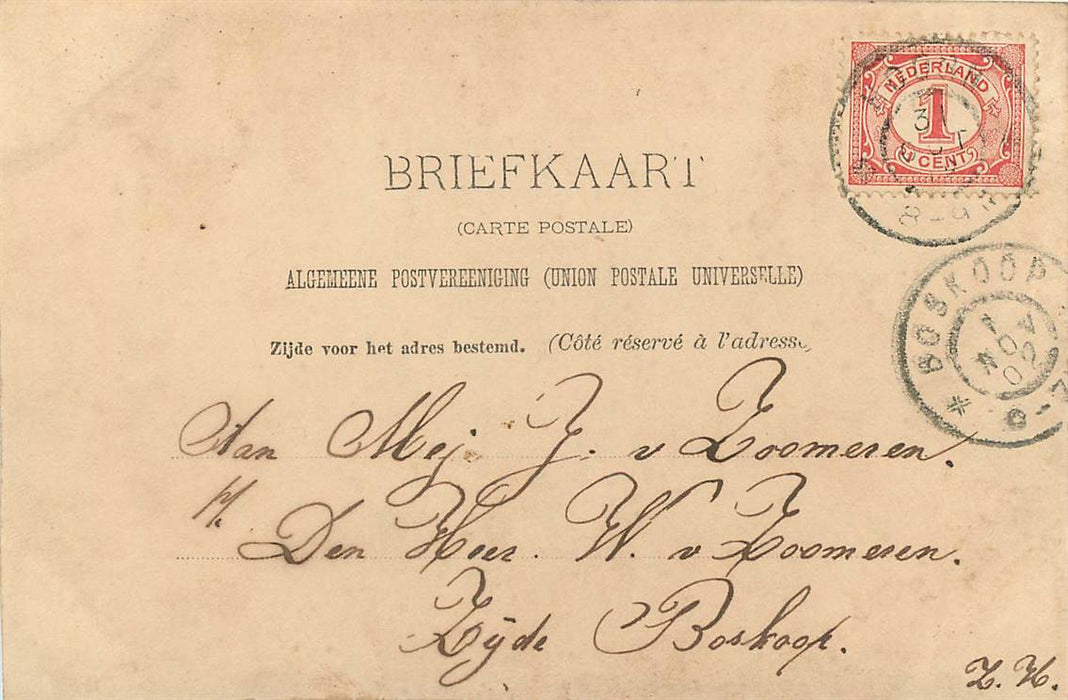 NEDERLAND
1
CENT
31
8-9
BRIEFKAART
(CARTE POSTALE)
ALGEMEENE POSTVEREENIGING (UNION POSTALE UNIVERSELLE)
Zijde voor het adres bestemd. (Côté réservé à l'adresse
BOSKOOP
1
NOV
02
6-7
Aan Mej J. v Zoomeren.
p/.
Den Heer. W. v Zoomeren.
Zijde Boskoop.
Z. H.